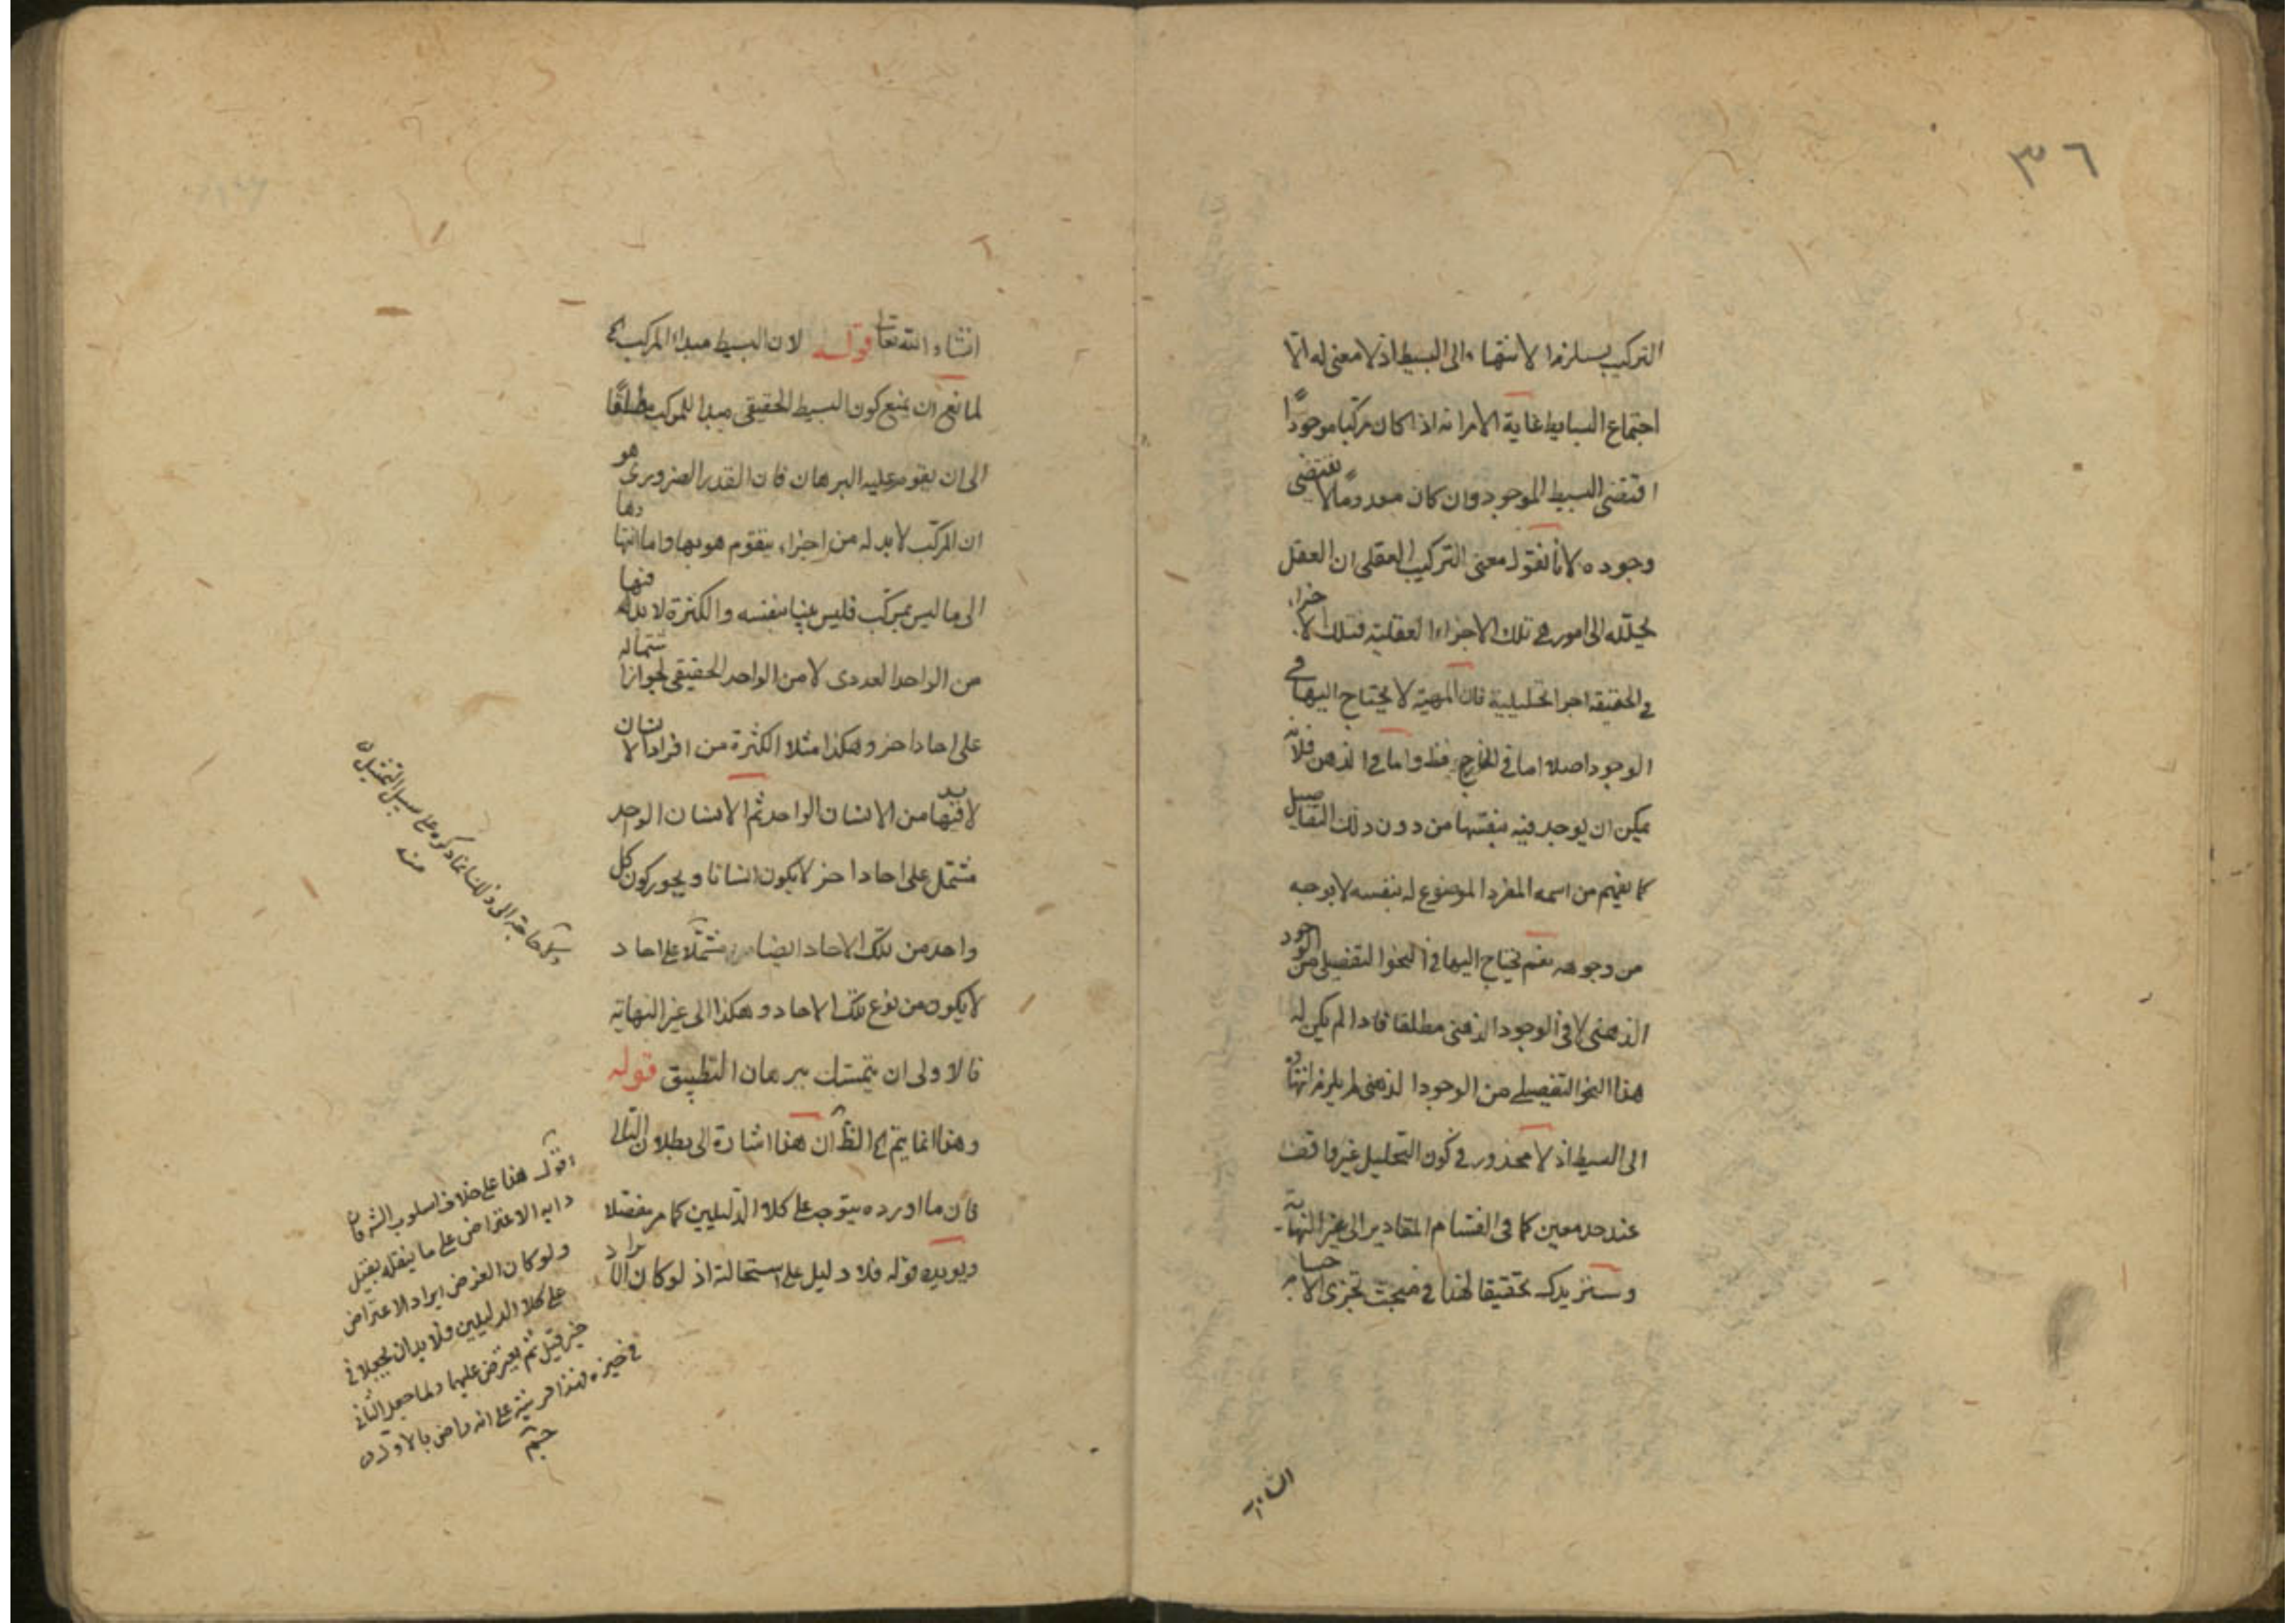 ٣٦
التركيب يستلزم الانتهاء الى البسيط اذ لا معنى له الا
اجتماع البسايط غاية الامر انه اذا كان مركبا موجودًا
اقتضى البسيط الموجود وان كان معدومًا لا يقتضى
وجوده لانا نقول معنى التركيب العقلى ان العقل
يحلّله الى امور هى تلك الاجزاء العقلية فتلك الاجزاء
فى الحقيقة اجزا تحليلية فان المهية لا يحتاج اليها فى
الوجود اصلا اما فى الخارج فظ واما فى الذهن فلانه
يمكن ان يوجد فيه بنفسها من دون ذلك التفاصيل
كما يفهم من اسمه المفرد الموضوع له بنفسه لا بوجه
من وجوهه نعم يحتاج اليها فى النحو التفصيلى من الوجود
الذهنى لا فى الوجود الذهنى مطلقا فاذا لم يكن له
هذا النحو التفصيلى من الوجود الذهنى لم يلزم انتهاؤه
الى البسيط اذ لا محذور فى كون التحليل غير واقف
عند حد معين كما فى انقسام المقادير الى غير النهاية
وسنزيدك تحقيقا لهذا فى مبحث تجزى الاجسا
انشاء
انشاء الله تعالى قوله لان البسيط مبداء المركب
لمانع ان يمنع كون البسيط الحقيقى مبدا للمركب مطلقًا
الى ان يقوم عليه البرهان فان القدر الضرورى هو
ان المركّب لابد له من اجزاء يتقوم هو بها واما انتهاءها
الى ما ليس بمركّب فليس بينا بنفسه والكثرة لابد له فيها
من الواحد العددى لا من الواحد الحقيقى لجواز اشتماله
على احاد اخر وهكذا مثلا الكثرة من افراد الانسان
لابد فيها من الانسان الواحد ثم الانسان الواحد
مشتمل على احاد اخر لا يكون انسانا ويجوز كون كل
واحد من تلك الاحاد ايضا مشتملا على احاد
لا يكون من نوع تلك الاحاد وهكذا الى غير النهاية
فالاولى ان يتمسك ببرهان التطبيق قوله
وهذا انما يتم الظ ان هذا اشارة الى بطلان التالى
فان ما اورده يتوجه على كلا الدليلين كما مر مفصلا
ويويده قوله فلا دليل على استحالته اذ لو كان المراد
حاجة الى ذلك انما ذكره على سبيل التمثيل
منه
اقول هذا على خلاف اسلوب الشه فان
دابه الاعتراض على ما ينقله بقيل
ولو كان الغرض ايراد الاعتراض
على كلا الدليلين فلا بد ان يجعلا فى
حيز قيل ثم يعترض عليهما ولما جعل الثانى
فى حيزه فهذا قرينة على انه راض بالاول